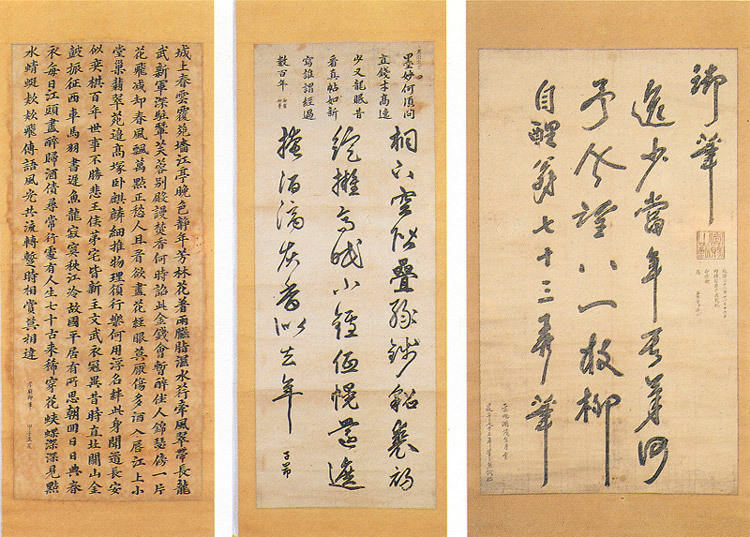 御筆
逸少當年有
八一枚柳
自醒翁七十三弄筆
墨妙何須問
直錢才高逸
少又龍眠昔
看真帖如新
寫誰謂經過
數百年
桐下空階疊綠錢貂裘初
綻擁高眠小鑪低幌還遮
掩酒滴灰香似去年
子昂
城上春雲覆苑墻江亭晚色靜年芳林花着雨臙脂濕水荇牽風翠帶長龍
武新軍深駐輦芙蓉別殿謾焚香何時詔此金錢會暫醉佳人錦瑟傍一片
花飛减却春風飄萬點正愁人且看欲盡花經眼莫厭傷多酒入唇江上小
堂巢翡翠苑邊高塚臥麒麟細推物理須行樂何用浮名絆此身聞道長安
似奕棋百年世事不勝悲王侯第宅皆新主文武衣冠異昔時直北關山金
鼓振征西車馬羽書遲魚龍寂寞秋江冷故國平居有所思朝回日日典春
衣每日江頭盡醉歸酒債尋常行處有人生七十古來稀穿花蛺蝶深深見點
水蜻蜓款款飛傳語風光共流轉暫時相賞莫相違